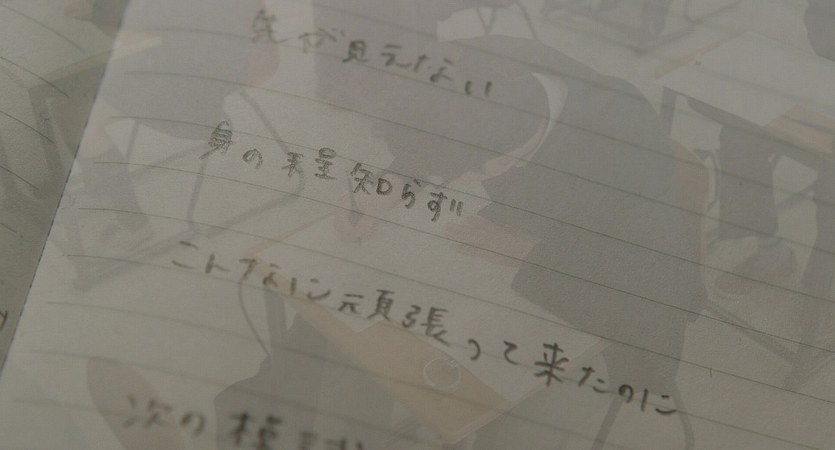 先が見えない
身の程知らず
こんなに頑張って来たのに
次の模試